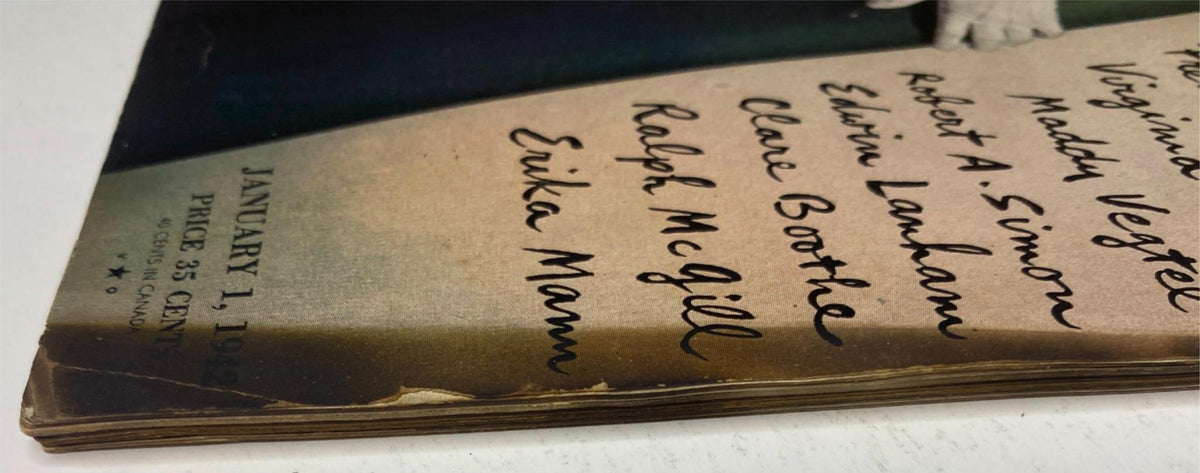 Virginia
Maddy Vegtel
Robert A. Simon
Edwin Lanham
Clare Boothe
Ralph McGill
Erika Mann
JANUARY 1, 1942
PRICE 35 CENTS
40 CENTS IN CANADA
V ★ O